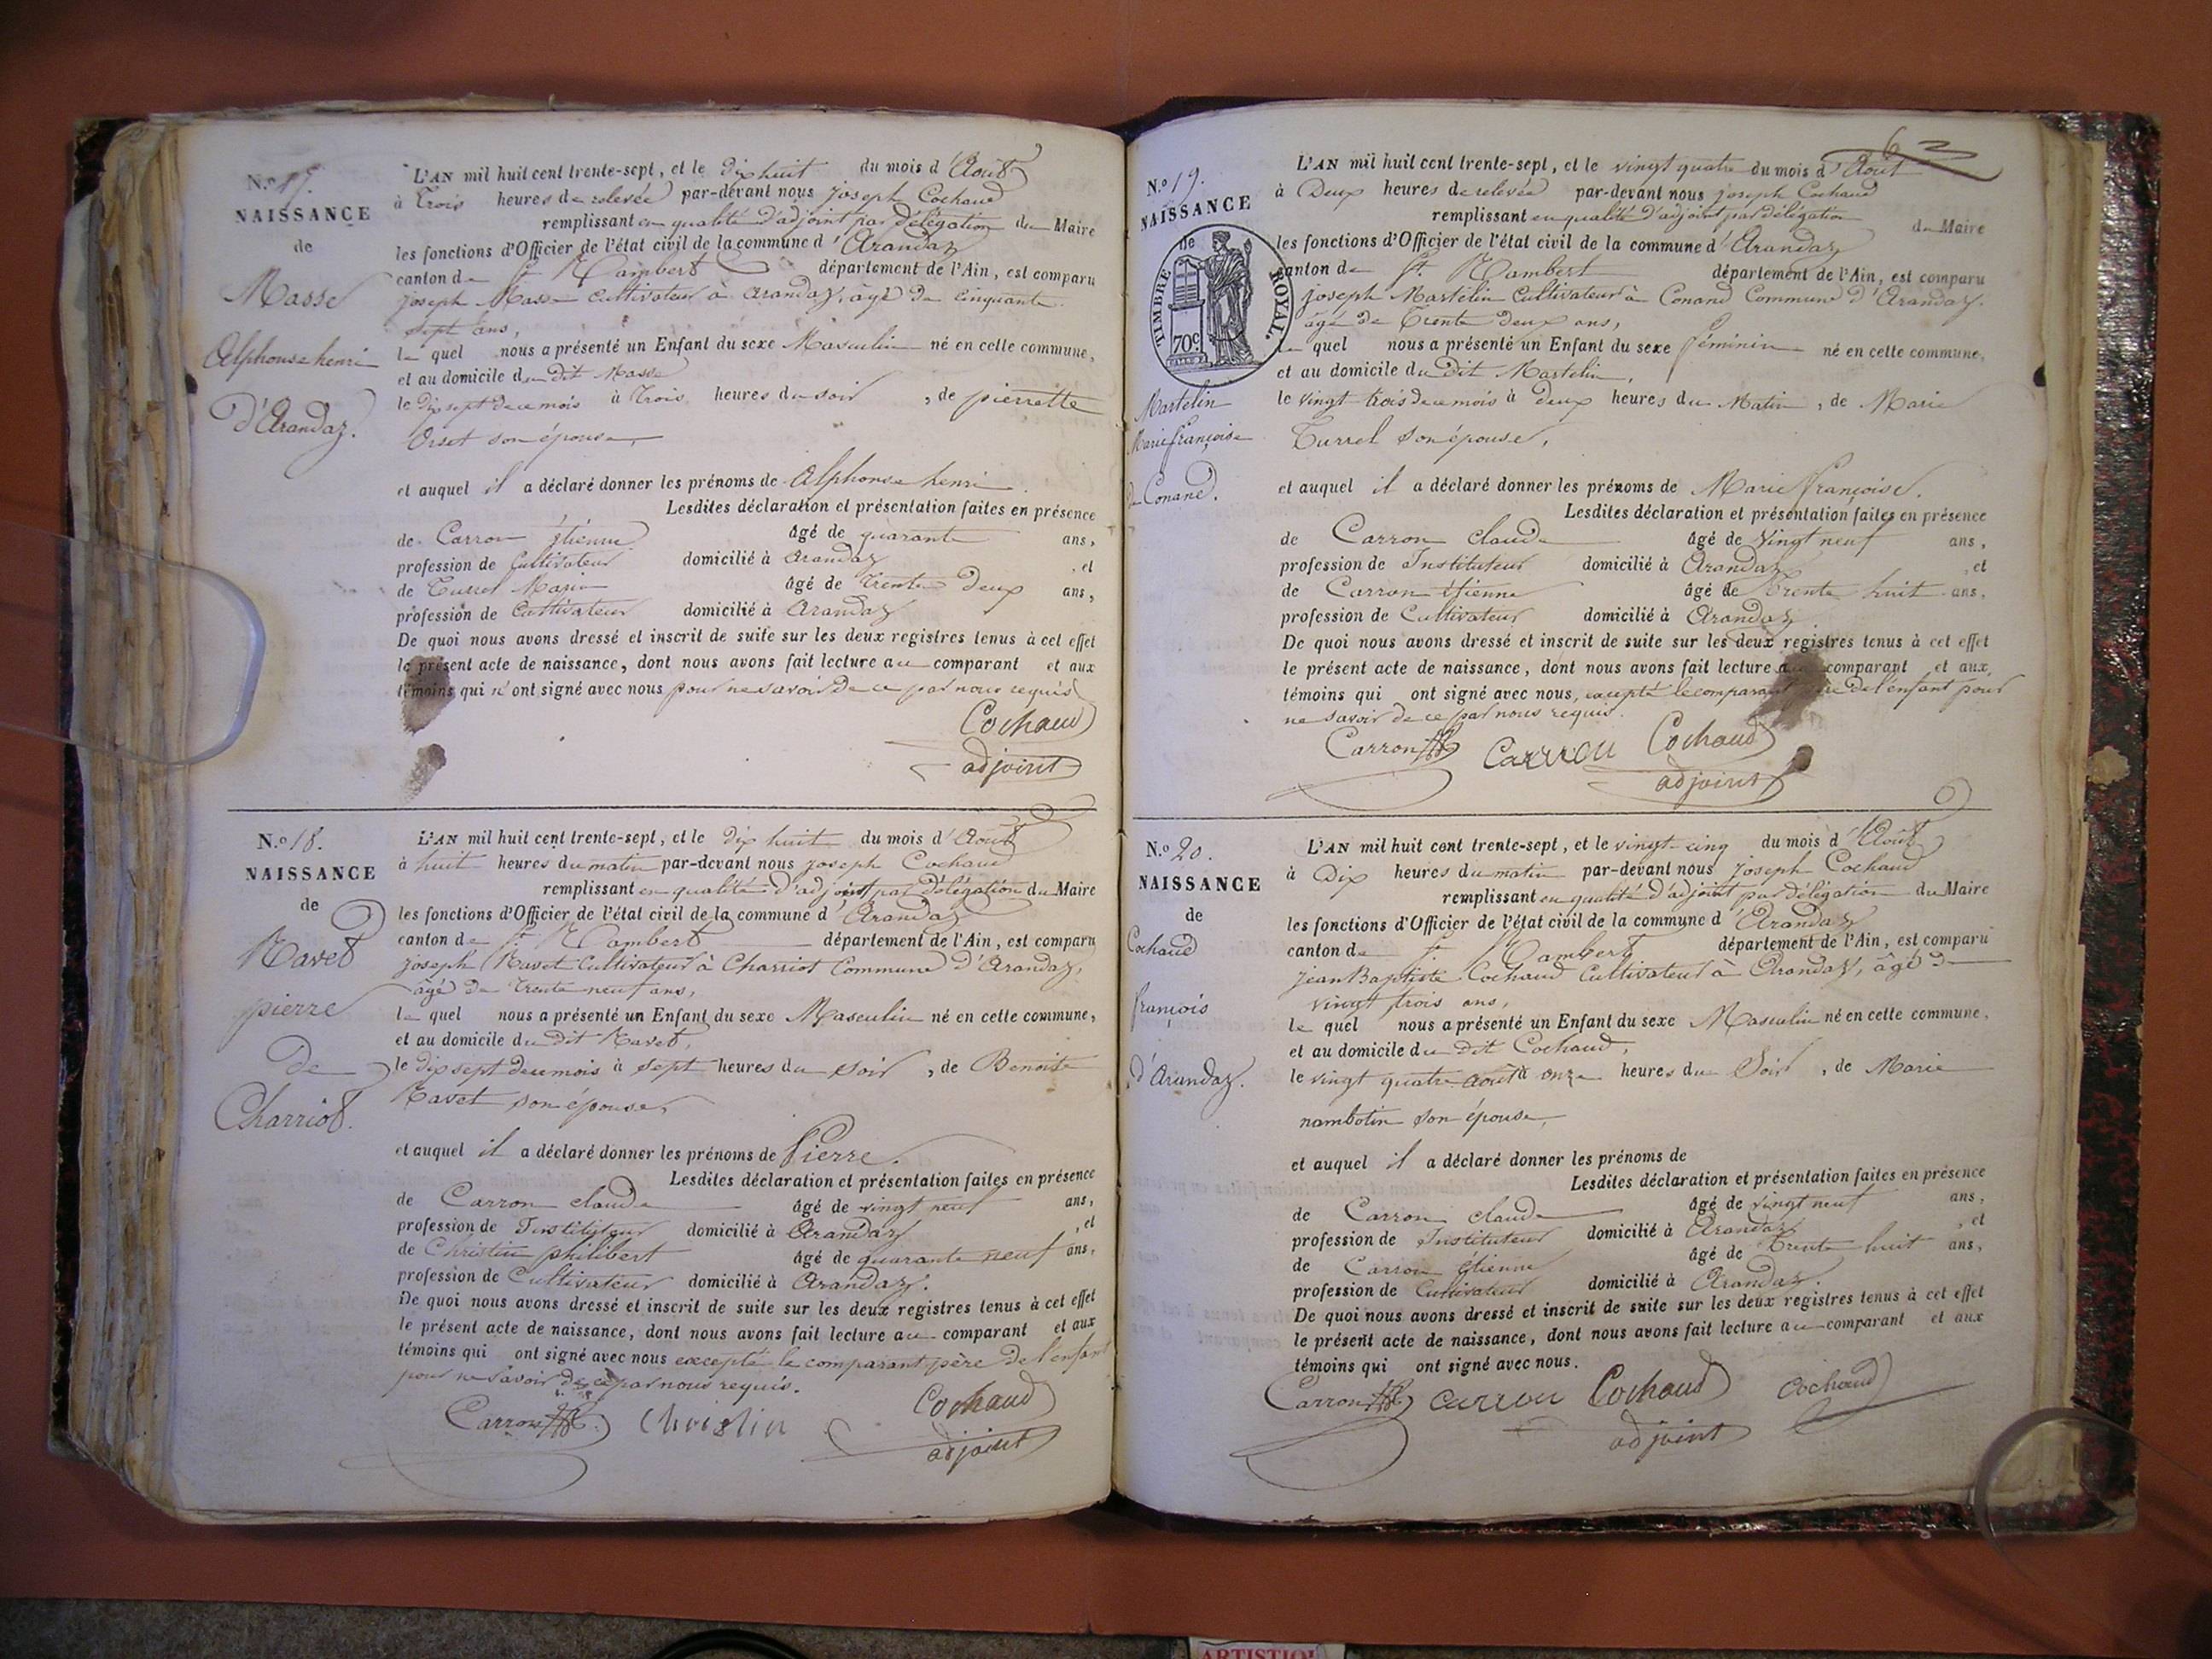 N.o 17.
NAISSANCE
de
Masse
Alphonse henri
d'Arandaz.
L'AN mil huit cent trente-sept, et le dix huit du mois d'Août
à Trois heures de relevée par-devant nous joseph Cochaud
remplissant en qualité d'adjoint par délégation du Maire
les fonctions d'Officier de l'état civil de la commune d'Arandaz
canton de St. Rambert département de l'Ain, est comparu
joseph Masse Cultivateur à arandaz, âgé de cinquante
sept ans,
le quel nous a présenté un Enfant du sexe Masculin né en cette commune,
et au domicile du dit Masse
le dix sept de ce mois à Trois heures du soir, de pierrette
Orset son épouse,
et auquel il a déclaré donner les prénoms de Alphonse henri.
Lesdites déclaration et présentation faites en présence
de Carron étienne âgé de quarante ans,
profession de Cultivateur domicilié à Arandaz, et
de Turrel Marin âgé de Trente Deux ans,
profession de Cultivateur domicilié à Arandaz
De quoi nous avons dressé et inscrit de suite sur les deux registres tenus à cet effet
le présent acte de naissance, dont nous avons fait lecture au comparant et aux
témoins qui n'ont signé avec nous pour ne savoir de ce par nous requis
Cochaud
adjoint
N.o 18.
NAISSANCE
de
Ravet
pierre
De
Charriot.
L'AN mil huit cent trente-sept, et le dix huit du mois d'Août
à huit heures du matin par-devant nous joseph Cochaud
remplissant en qualité d'adjoint par délégation du Maire
les fonctions d'Officier de l'état civil de la commune d'Arandaz
canton de St. Rambert département de l'Ain, est comparu
joseph Ravet Cultivateur à Charriot Commune d'Arandaz,
âgé de Trente neuf ans,
le quel nous a présenté un Enfant du sexe Masculin né en cette commune,
et au domicile du dit Ravet,
le dix sept de ce mois à sept heures du soir, de Benoite
Ravet son épouse,
et auquel il a déclaré donner les prénoms de Pierre.
Lesdites déclaration et présentation faites en présence
de Carron claude âgé de vingt neuf ans,
profession de Instituteur domicilié à Arandaz, et
de Christin philibert âgé de quarante neuf ans,
profession de Cultivateur domicilié à Arandaz.
De quoi nous avons dressé et inscrit de suite sur les deux registres tenus à cet effet
le présent acte de naissance, dont nous avons fait lecture au comparant et aux
témoins qui ont signé avec nous excepté le comparant père de l'enfant
pour ne savoir de ce par nous requis.
Carron Christin Cochaud
adjoint
6
N.o 19.
NAISSANCE
de
TIMBRE ROYAL.
70c
Martelin
Marie françoise
de Conand.
L'AN mil huit cent trente-sept, et le vingt quatre du mois d'Août
à Deux heures de relevée par-devant nous joseph Cochaud
remplissant en qualité d'adjoint par délégation du Maire
les fonctions d'Officier de l'état civil de la commune d'Arandaz
canton de St. Rambert département de l'Ain, est comparu
joseph Martelin Cultivateur à Conand Commune d'Arandaz.
âgé de Trente deux ans,
le quel nous a présenté un Enfant du sexe féminin né en cette commune,
et au domicile du dit Martelin,
le vingt trois de ce mois à deux heures du Matin, de Marie
Turrel son épouse,
et auquel il a déclaré donner les prénoms de Marie françoise.
Lesdites déclaration et présentation faites en présence
de Carron claude âgé de Vingt neuf ans,
profession de Instituteur domicilié à Arandaz, et
de Carron étienne âgé de Trente huit ans,
profession de Cultivateur domicilié à Arandaz
De quoi nous avons dressé et inscrit de suite sur les deux registres tenus à cet effet
le présent acte de naissance, dont nous avons fait lecture au comparant et aux
témoins qui ont signé avec nous, excepté le comparant père de l'enfant pour
ne savoir de ce par nous requis.
Carron Carrou Cochaud
adjoint
N.o 20.
NAISSANCE
de
Cochaud
françois
d'Arandaz.
L'AN mil huit cent trente-sept, et le vingt cinq du mois d'Août
à Dix heures du matin par-devant nous joseph Cochaud
remplissant en qualité d'adjoint par délégation du Maire
les fonctions d'Officier de l'état civil de la commune d'Arandaz
canton de St. Rambert département de l'Ain, est comparu
jean Baptiste Cochaud Cultivateur à Arandaz, âgé de
vingt trois ans,
le quel nous a présenté un Enfant du sexe Masculin né en cette commune,
et au domicile du dit Cochaud,
le vingt quatre août à onze heures du Soir, de Marie
nambotin son épouse,
et auquel il a déclaré donner les prénoms de
Lesdites déclaration et présentation faites en présence
de Carron claude âgé de vingt neuf ans,
profession de Instituteur domicilié à Arandaz, et
de Carron étienne âgé de Trente huit ans,
profession de Cultivateur domicilié à Arandaz.
De quoi nous avons dressé et inscrit de suite sur les deux registres tenus à cet effet
le présent acte de naissance, dont nous avons fait lecture au comparant et aux
témoins qui ont signé avec nous.
Carron Carrou Cochaud Cochaud
adjoint